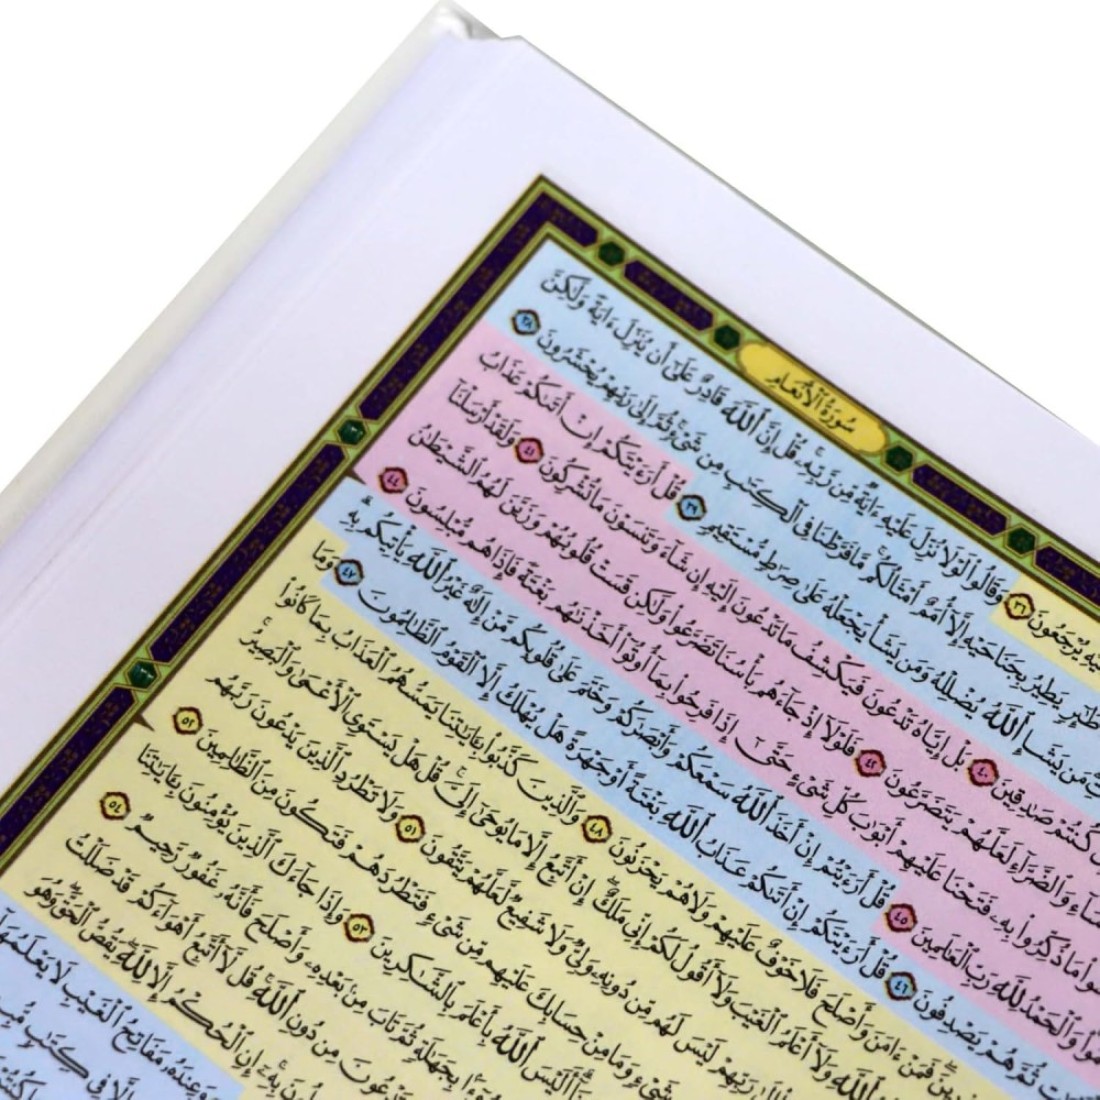 سُورَةُ ٱلْأَنْعَامِ
يُرْجَعُونَ ٣٦ وَقَالُوا۟ لَوْلَا نُزِّلَ عَلَيْهِ ءَايَةٌ مِّن رَّبِّهِۦ ۚ قُلْ إِنَّ ٱللَّهَ قَادِرٌ عَلَىٰٓ أَن يُنَزِّلَ ءَايَةً وَلَٰكِنَّ
يَطِيرُ بِجَنَاحَيْهِ إِلَّآ أُمَمٌ أَمْثَالُكُم ۚ مَّا فَرَّطْنَا فِى ٱلْكِتَٰبِ مِن شَىْءٍ ۚ ثُمَّ إِلَىٰ رَبِّهِمْ يُحْشَرُونَ ٣٨
مَن يَشَإِ ٱللَّهُ يُضْلِلْهُ وَمَن يَشَأْ يَجْعَلْهُ عَلَىٰ صِرَٰطٍ مُّسْتَقِيمٍ ٣٩ قُلْ أَرَءَيْتَكُمْ إِنْ أَتَىٰكُمْ عَذَابُ
كُنتُمْ صَٰدِقِينَ ٤٠ بَلْ إِيَّاهُ تَدْعُونَ فَيَكْشِفُ مَا تَدْعُونَ إِلَيْهِ إِن شَآءَ وَتَنسَوْنَ مَا تُشْرِكُونَ ٤١ وَلَقَدْ أَرْسَلْنَآ
وَٱلضَّرَّآءِ لَعَلَّهُمْ يَتَضَرَّعُونَ ٤٢ فَلَوْلَآ إِذْ جَآءَهُم بَأْسُنَا تَضَرَّعُوا۟ وَلَٰكِن قَسَتْ قُلُوبُهُمْ وَزَيَّنَ لَهُمُ ٱلشَّيْطَٰنُ
مَا ذُكِّرُوا۟ بِهِۦ فَتَحْنَا عَلَيْهِمْ أَبْوَٰبَ كُلِّ شَىْءٍ حَتَّىٰٓ إِذَا فَرِحُوا۟ بِمَآ أُوتُوٓا۟ أَخَذْنَٰهُم بَغْتَةً فَإِذَا هُم مُّبْلِسُونَ ٤٤
وَٱلْحَمْدُ لِلَّهِ رَبِّ ٱلْعَٰلَمِينَ ٤٥ قُلْ أَرَءَيْتُمْ إِنْ أَخَذَ ٱللَّهُ سَمْعَكُمْ وَأَبْصَٰرَكُمْ وَخَتَمَ عَلَىٰ قُلُوبِكُم مَّنْ إِلَٰهٌ غَيْرُ ٱللَّهِ يَأْتِيكُم بِهِ ۗ
ثُمَّ هُمْ يَصْدِفُونَ ٤٦ قُلْ أَرَءَيْتَكُمْ إِنْ أَتَىٰكُمْ عَذَابُ ٱللَّهِ بَغْتَةً أَوْ جَهْرَةً هَلْ يُهْلَكُ إِلَّا ٱلْقَوْمُ ٱلظَّٰلِمُونَ ٤٧ وَمَا
فَمَنْ ءَامَنَ وَأَصْلَحَ فَلَا خَوْفٌ عَلَيْهِمْ وَلَا هُمْ يَحْزَنُونَ ٤٨ وَٱلَّذِينَ كَذَّبُوا۟ بِـَٔايَٰتِنَا يَمَسُّهُمُ ٱلْعَذَابُ بِمَا كَانُوا۟
ٱللَّهِ وَلَآ أَعْلَمُ ٱلْغَيْبَ وَلَآ أَقُولُ لَكُمْ إِنِّى مَلَكٌ ۖ إِنْ أَتَّبِعُ إِلَّا مَا يُوحَىٰٓ إِلَىَّ ۚ قُلْ هَلْ يَسْتَوِى ٱلْأَعْمَىٰ وَٱلْبَصِيرُ ۚ
رَبِّهِمْ لَيْسَ لَهُم مِّن دُونِهِۦ وَلِىٌّ وَلَا شَفِيعٌ لَّعَلَّهُمْ يَتَّقُونَ ٥١ وَلَا تَطْرُدِ ٱلَّذِينَ يَدْعُونَ رَبَّهُم
شَىْءٍ وَمَا مِنْ حِسَابِكَ عَلَيْهِم مِّن شَىْءٍ فَتَطْرُدَهُمْ فَتَكُونَ مِنَ ٱلظَّٰلِمِينَ ٥٢
أَلَيْسَ ٱللَّهُ بِأَعْلَمَ بِٱلشَّٰكِرِينَ ٥٣ وَإِذَا جَآءَكَ ٱلَّذِينَ يُؤْمِنُونَ بِـَٔايَٰتِنَا
بِجَهَٰلَةٍ ثُمَّ تَابَ مِنۢ بَعْدِهِۦ وَأَصْلَحَ فَأَنَّهُۥ غَفُورٌ رَّحِيمٌ ٥٤
مِن دُونِ ٱللَّهِ ۚ قُل لَّآ أَتَّبِعُ أَهْوَآءَكُمْ ۙ قَدْ ضَلَلْتُ
بِهِۦٓ ۚ إِنِ ٱلْحُكْمُ إِلَّا لِلَّهِ ۖ يَقُصُّ ٱلْحَقَّ ۖ وَهُوَ
وَعِندَهُۥ مَفَاتِحُ ٱلْغَيْبِ لَا يَعْلَمُهَآ
إِلَّا فِى كِتَٰبٍ